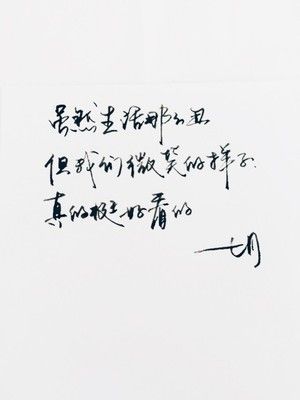 虽然生活那么丑
但我们微笑的样子
真的挺好看的
——七月